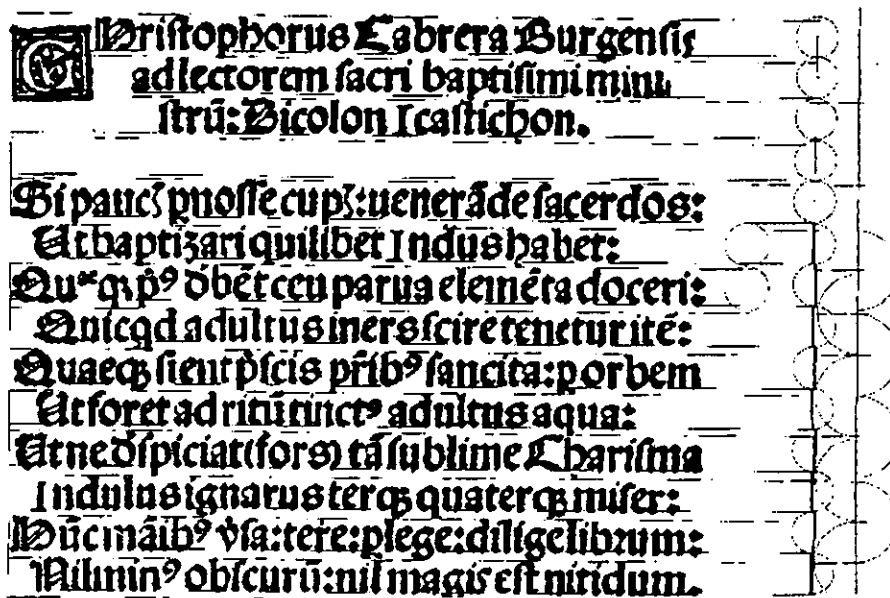 Christophorus Cabrera Burgensis
ad lectorem sacri baptismi mini
strū: Dicolon Icastichon.
Si paucꝭ pnosse cupꝭ: uenerāde sacerdos:
Ut baptizari quilibet Indus habet:
Quꝫ pꝰ dbēt ceu parua elemēta doceri:
Quicqd adultus iners scire tenetur itē:
Quaeqꝫ sient pscis prībꝰ sancita: p orbem
Ut foret ad ritū tinctꝰ adultus aqua:
Ut ne dspiciat (fors) tā sublime Charisma
Indulus ignarus terqꝫ quaterqꝫ miser:
Hūc māibꝰ vsa: tere: plege: dilige librum:
Nil minꝰ obscurū: nil magis est nitidum.